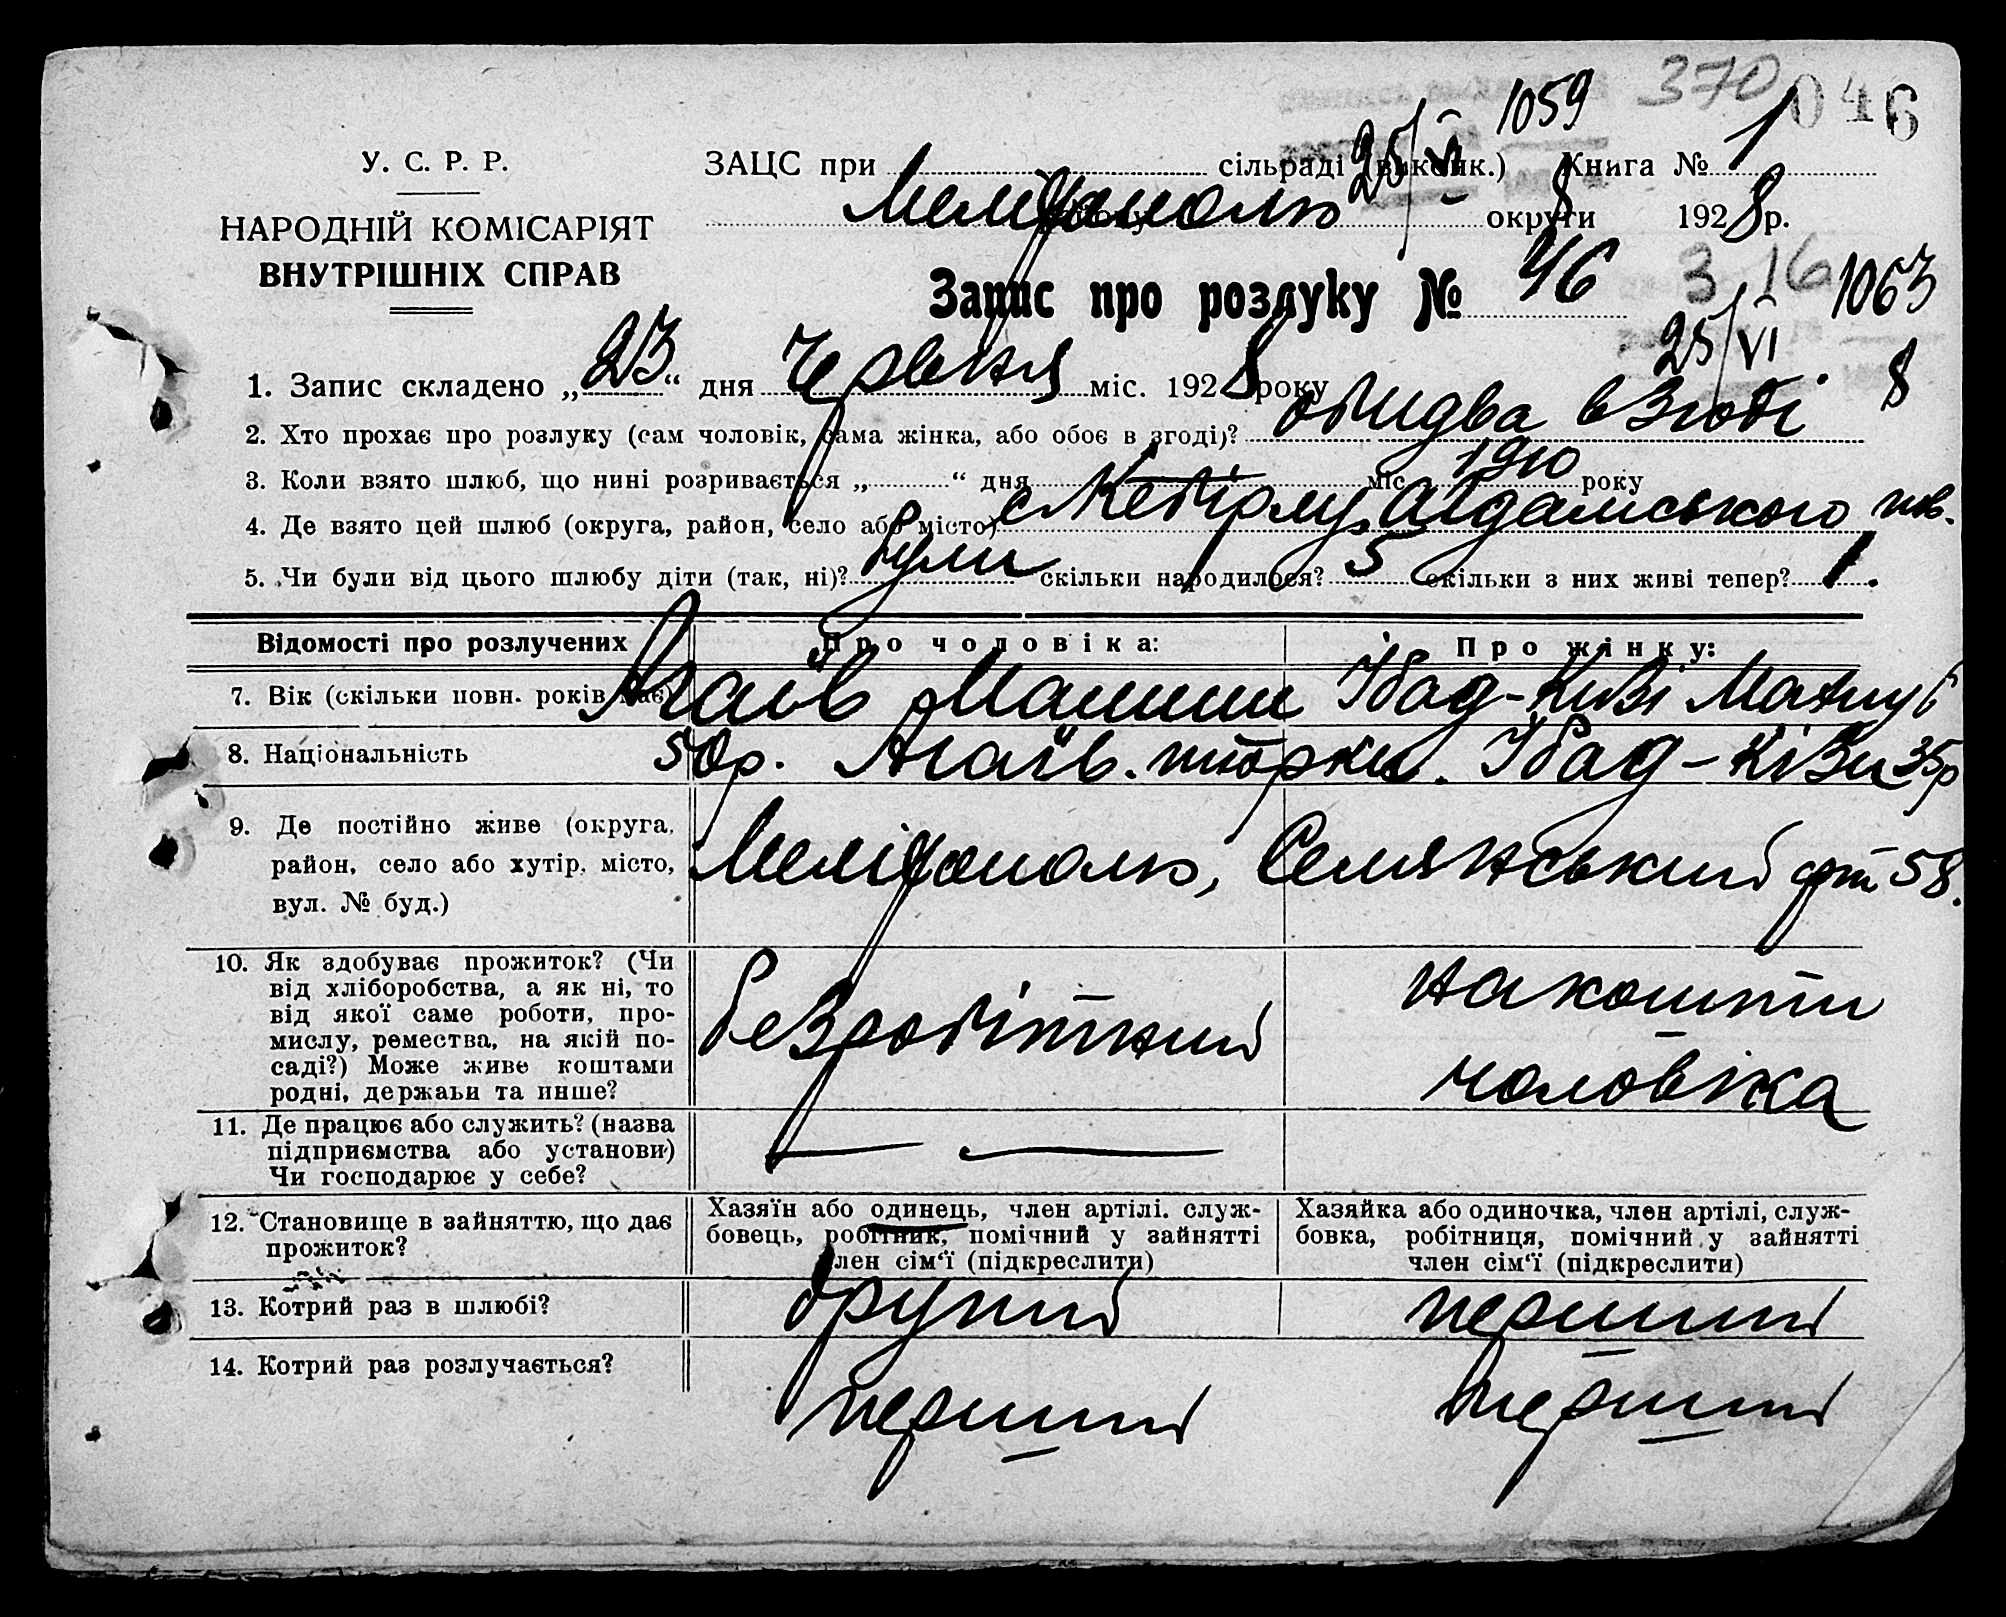 370 046
1059
25/VI 8
У. С. Р. Р.
НАРОДНІЙ КОМІСАРІЯТ
ВНУТРІШНІХ СПРАВ
ЗАЦС при сільраді (виконк.) Книга № 1
Мелітополь округи 1928 р.
Запис про розлуку № 46
3 16 1063
25/VI 8
1. Запис складено „23“ дня Червня міс. 1928 року
2. Хто прохає про розлуку (сам чоловік, сама жінка, або обоє в згоді)? обидва в згоді
3. Коли взято шлюб, що нині розривається „ “ дня міс. 1910 року
4. Де взято цей шлюб (округа, район, село або місто) с
5. Чи були від цього шлюбу діти (так, ні)? були скільки народилося? 5 скільки з них живі тепер? 1.
Відомості про розлучених Про чоловіка: Про жінку:
7. Вік (скільки повн. років має) Агаїв Ібад-Кизі
8. Національність 50р. Агаїв. тюрки. Ібад-Кізи 35р
9. Де постійно живе (округа, район, село або хутір, місто, вул. № буд.)
Мелітополь, 58.
10. Як здобуває прожиток? (Чи від хліборобства, а як ні, то від якої саме роботи, промислу, ремества, на якій посаді?) Може живе коштами родні, держави та инше?
безробітний
на кошти
чоловіка
11. Де працює або служить? (назва підприємства або установи) Чи господарює у себе?
— —
12. Становище в зайняттю, що дає прожиток?
Хазяїн або одинець, член артілі, службовець, робітник, помічний у зайнятті член сім‘ї (підкреслити)
Хазяйка або одиночка, член артілі, службовка, робітниця, помічний у зайнятті член сім‘ї (підкреслити)
13. Котрий раз в шлюбі? другий перший
14. Котрий раз розлучається? перший перший